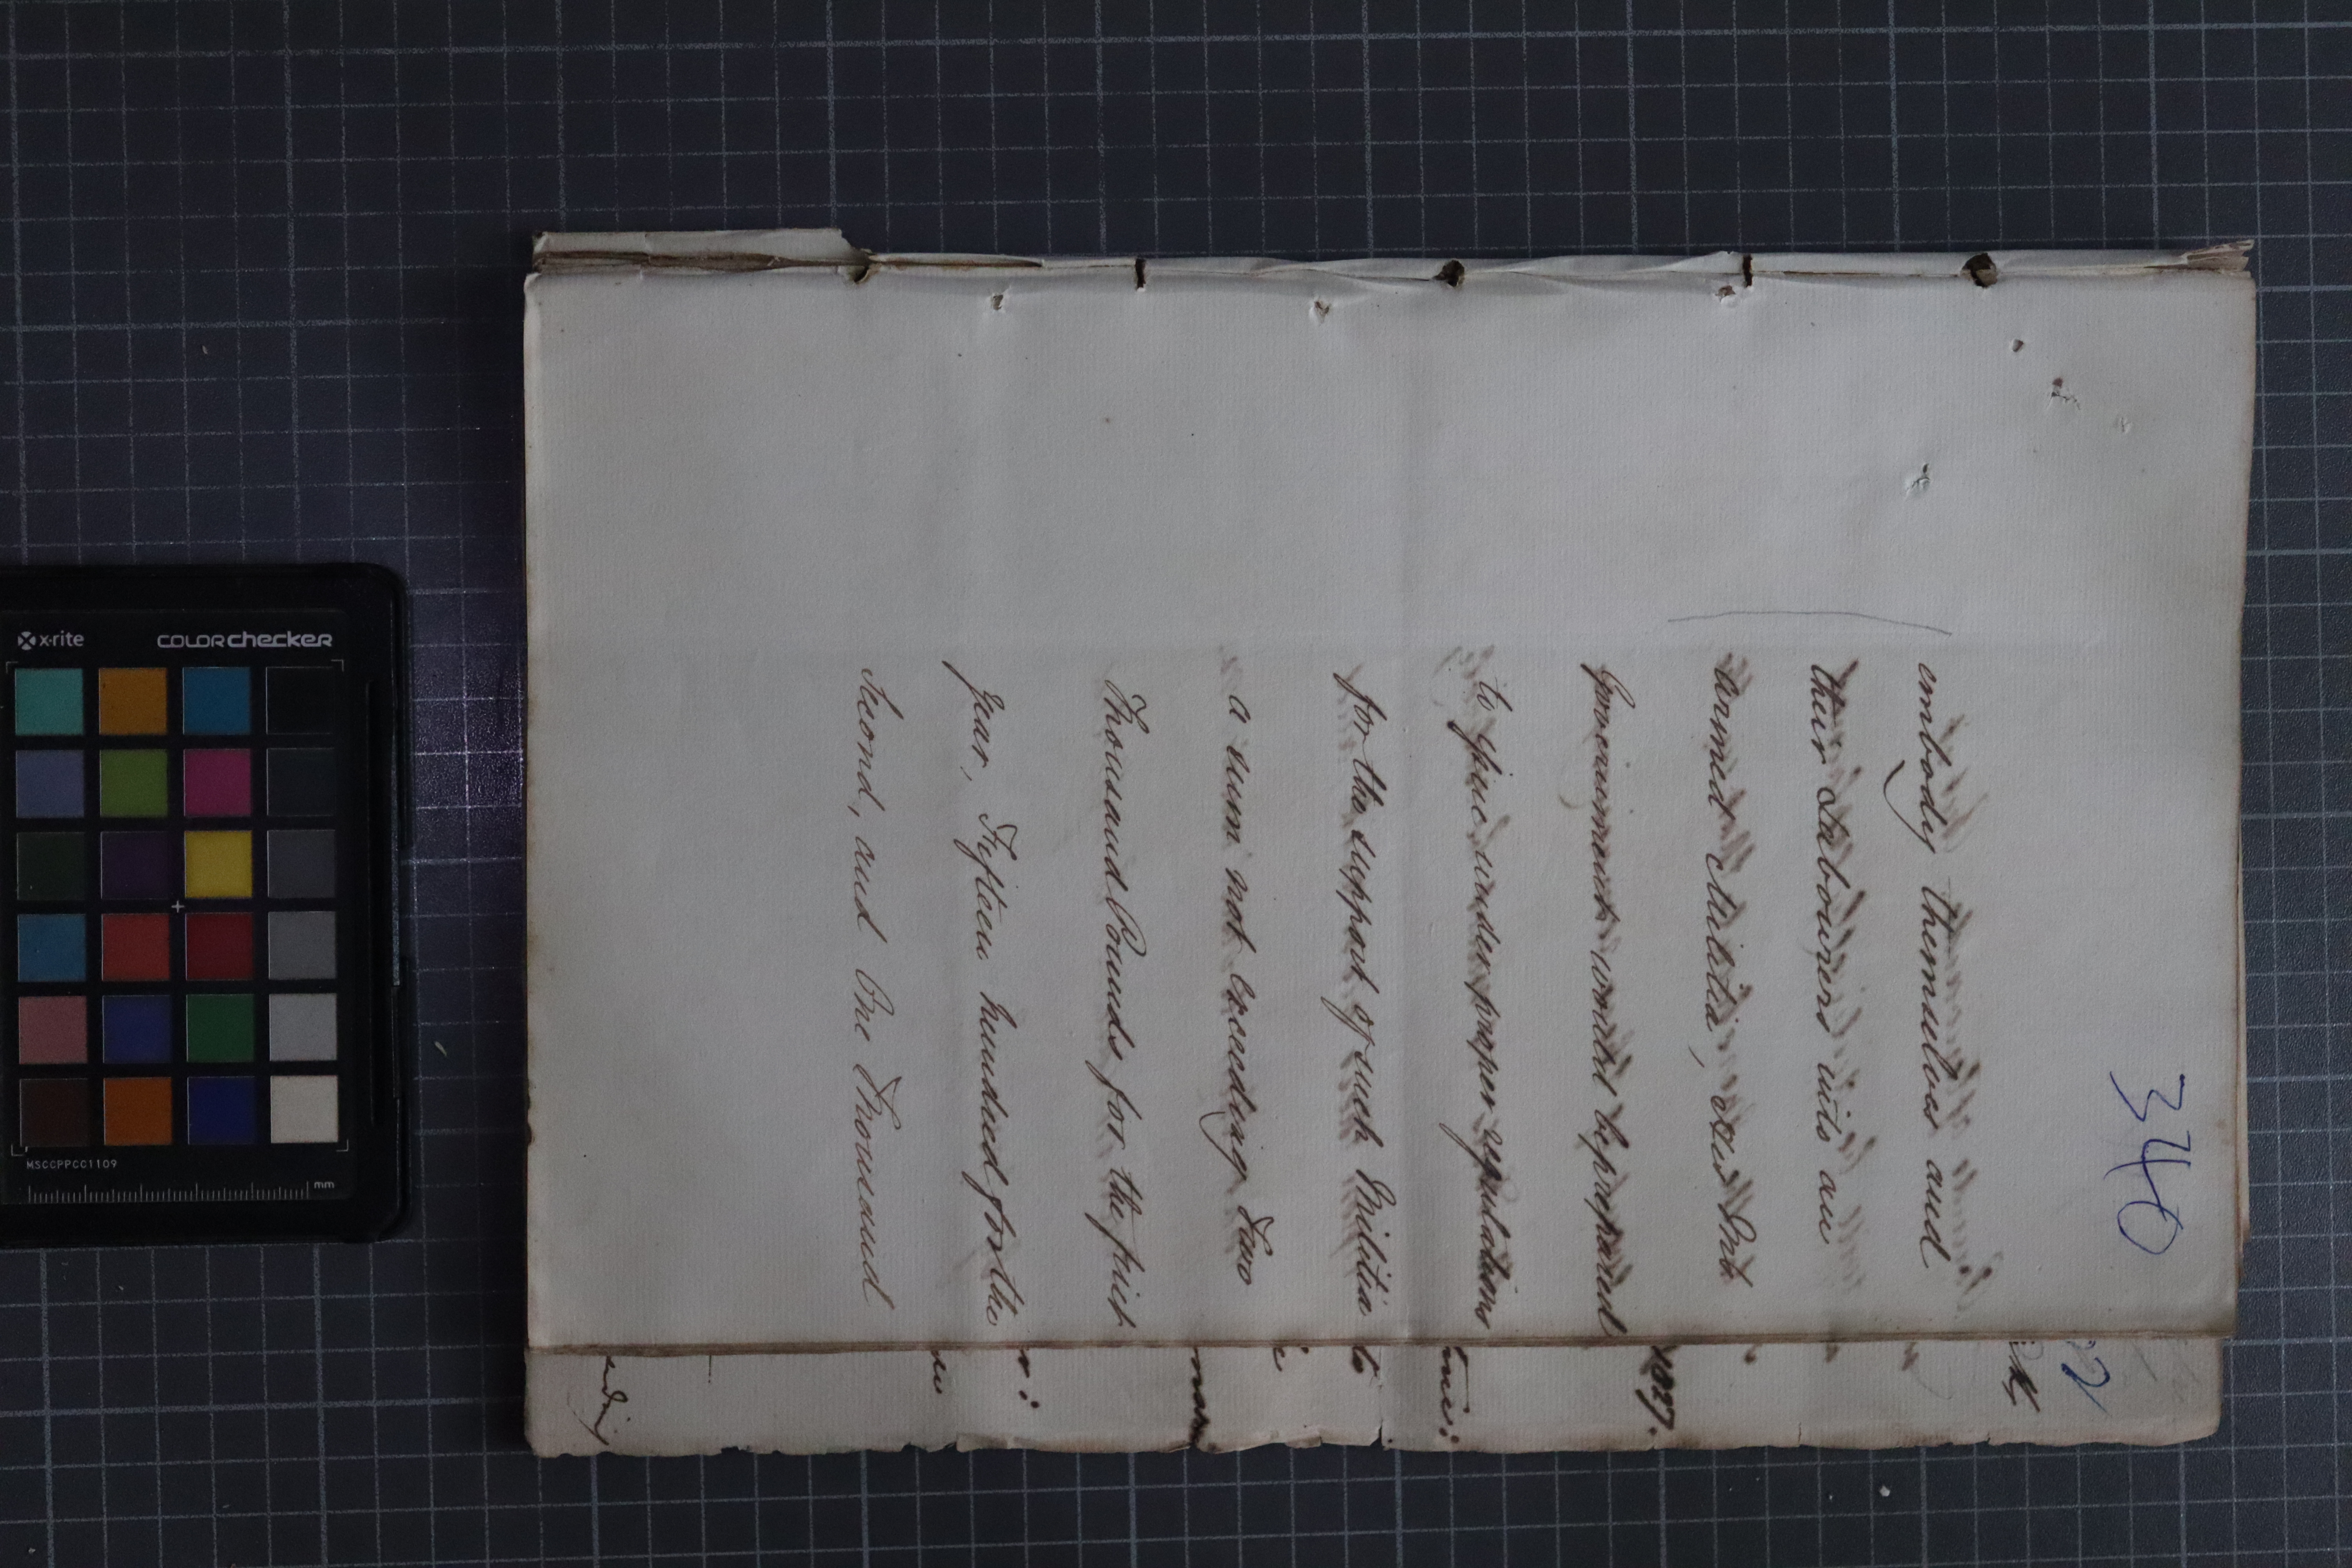 340
embody themselves and
their Labourers into an
armed Militia,
Government would be prepared
to give under proper regulations
for the support of such Militia
a sum not exceeding Two
Thousand Pounds for the first
Year, Fifteen hundred for the
Second, and One Thousand
1827.
x-rite
colorchecker
MSCCPPCC1109
mm